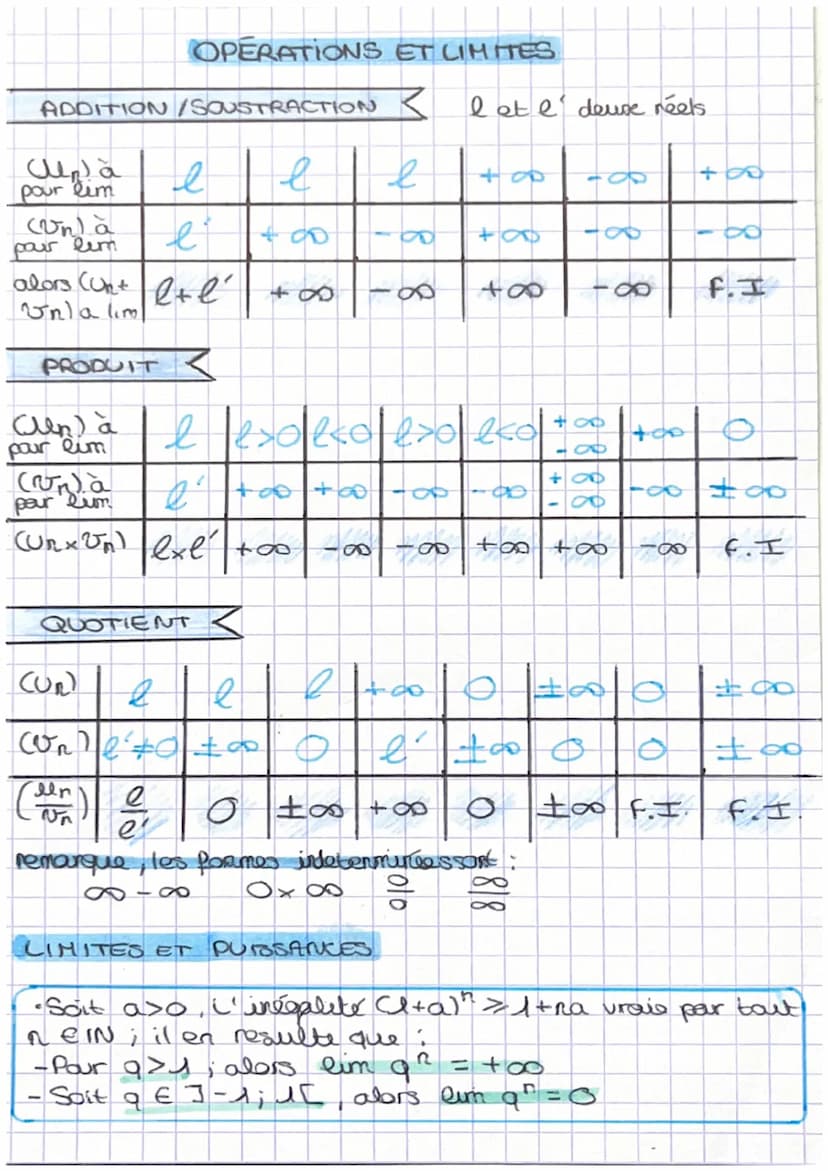 OPÉRATIONS ET LIMITES
ADDITION / SOUSTRACTION l et l' deux réels
(Un) à pour lim | l | l | l | +∞ | -∞ | +∞
(Vn) à pour lim | l' | +∞ | -∞ | +∞ | -∞ | -∞
alors (Un+Vn) a lim | l+l' | +∞ | -∞ | +∞ | -∞ | F.I
PRODUIT
(Un) à pour lim | l | l>0 | l<0 | l>0 | l<0 | +∞ -∞ | +∞ | 0
(Vn) à pour lim | l' | +∞ | +∞ | -∞ | -∞ | +∞ -∞ | -∞ | ±∞
(Un×Vn) | l×l' | +∞ | -∞ | -∞ | +∞ | +∞ | -∞ | F.I
QUOTIENT
(Un) | l | l | l | +∞ | 0 | ±∞ | 0 | ±∞
(Vn) | l'≠0 | ±∞ | 0 | l' | ±∞ | 0 | 0 | ±∞
(Un/Vn) | l/l' | 0 | ±∞ | +∞ | 0 | ±∞ | F.I. | F.I.
remarque, les formes indeterminées sont :
∞-∞ 0×∞ 0/0 ∞/∞
LIMITES ET PUISSANCES
•Soit a>0, L'inégalité (1+a)ⁿ ≥ 1+na vraie par tout
n ∈ IN ; il en resulte que :
-Pour q>1 ; alors lim qⁿ = +∞
- Soit q ∈ ]-1; 1[, alors lim qⁿ = 0